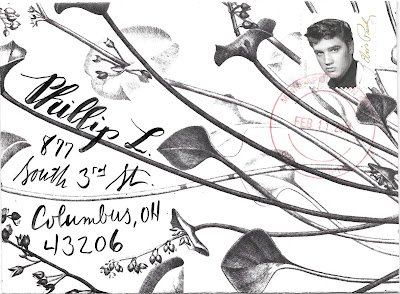 Phillip L.
877
South 3rd St.
Columbus, OH
43206
Elvis Presley
FEB 11